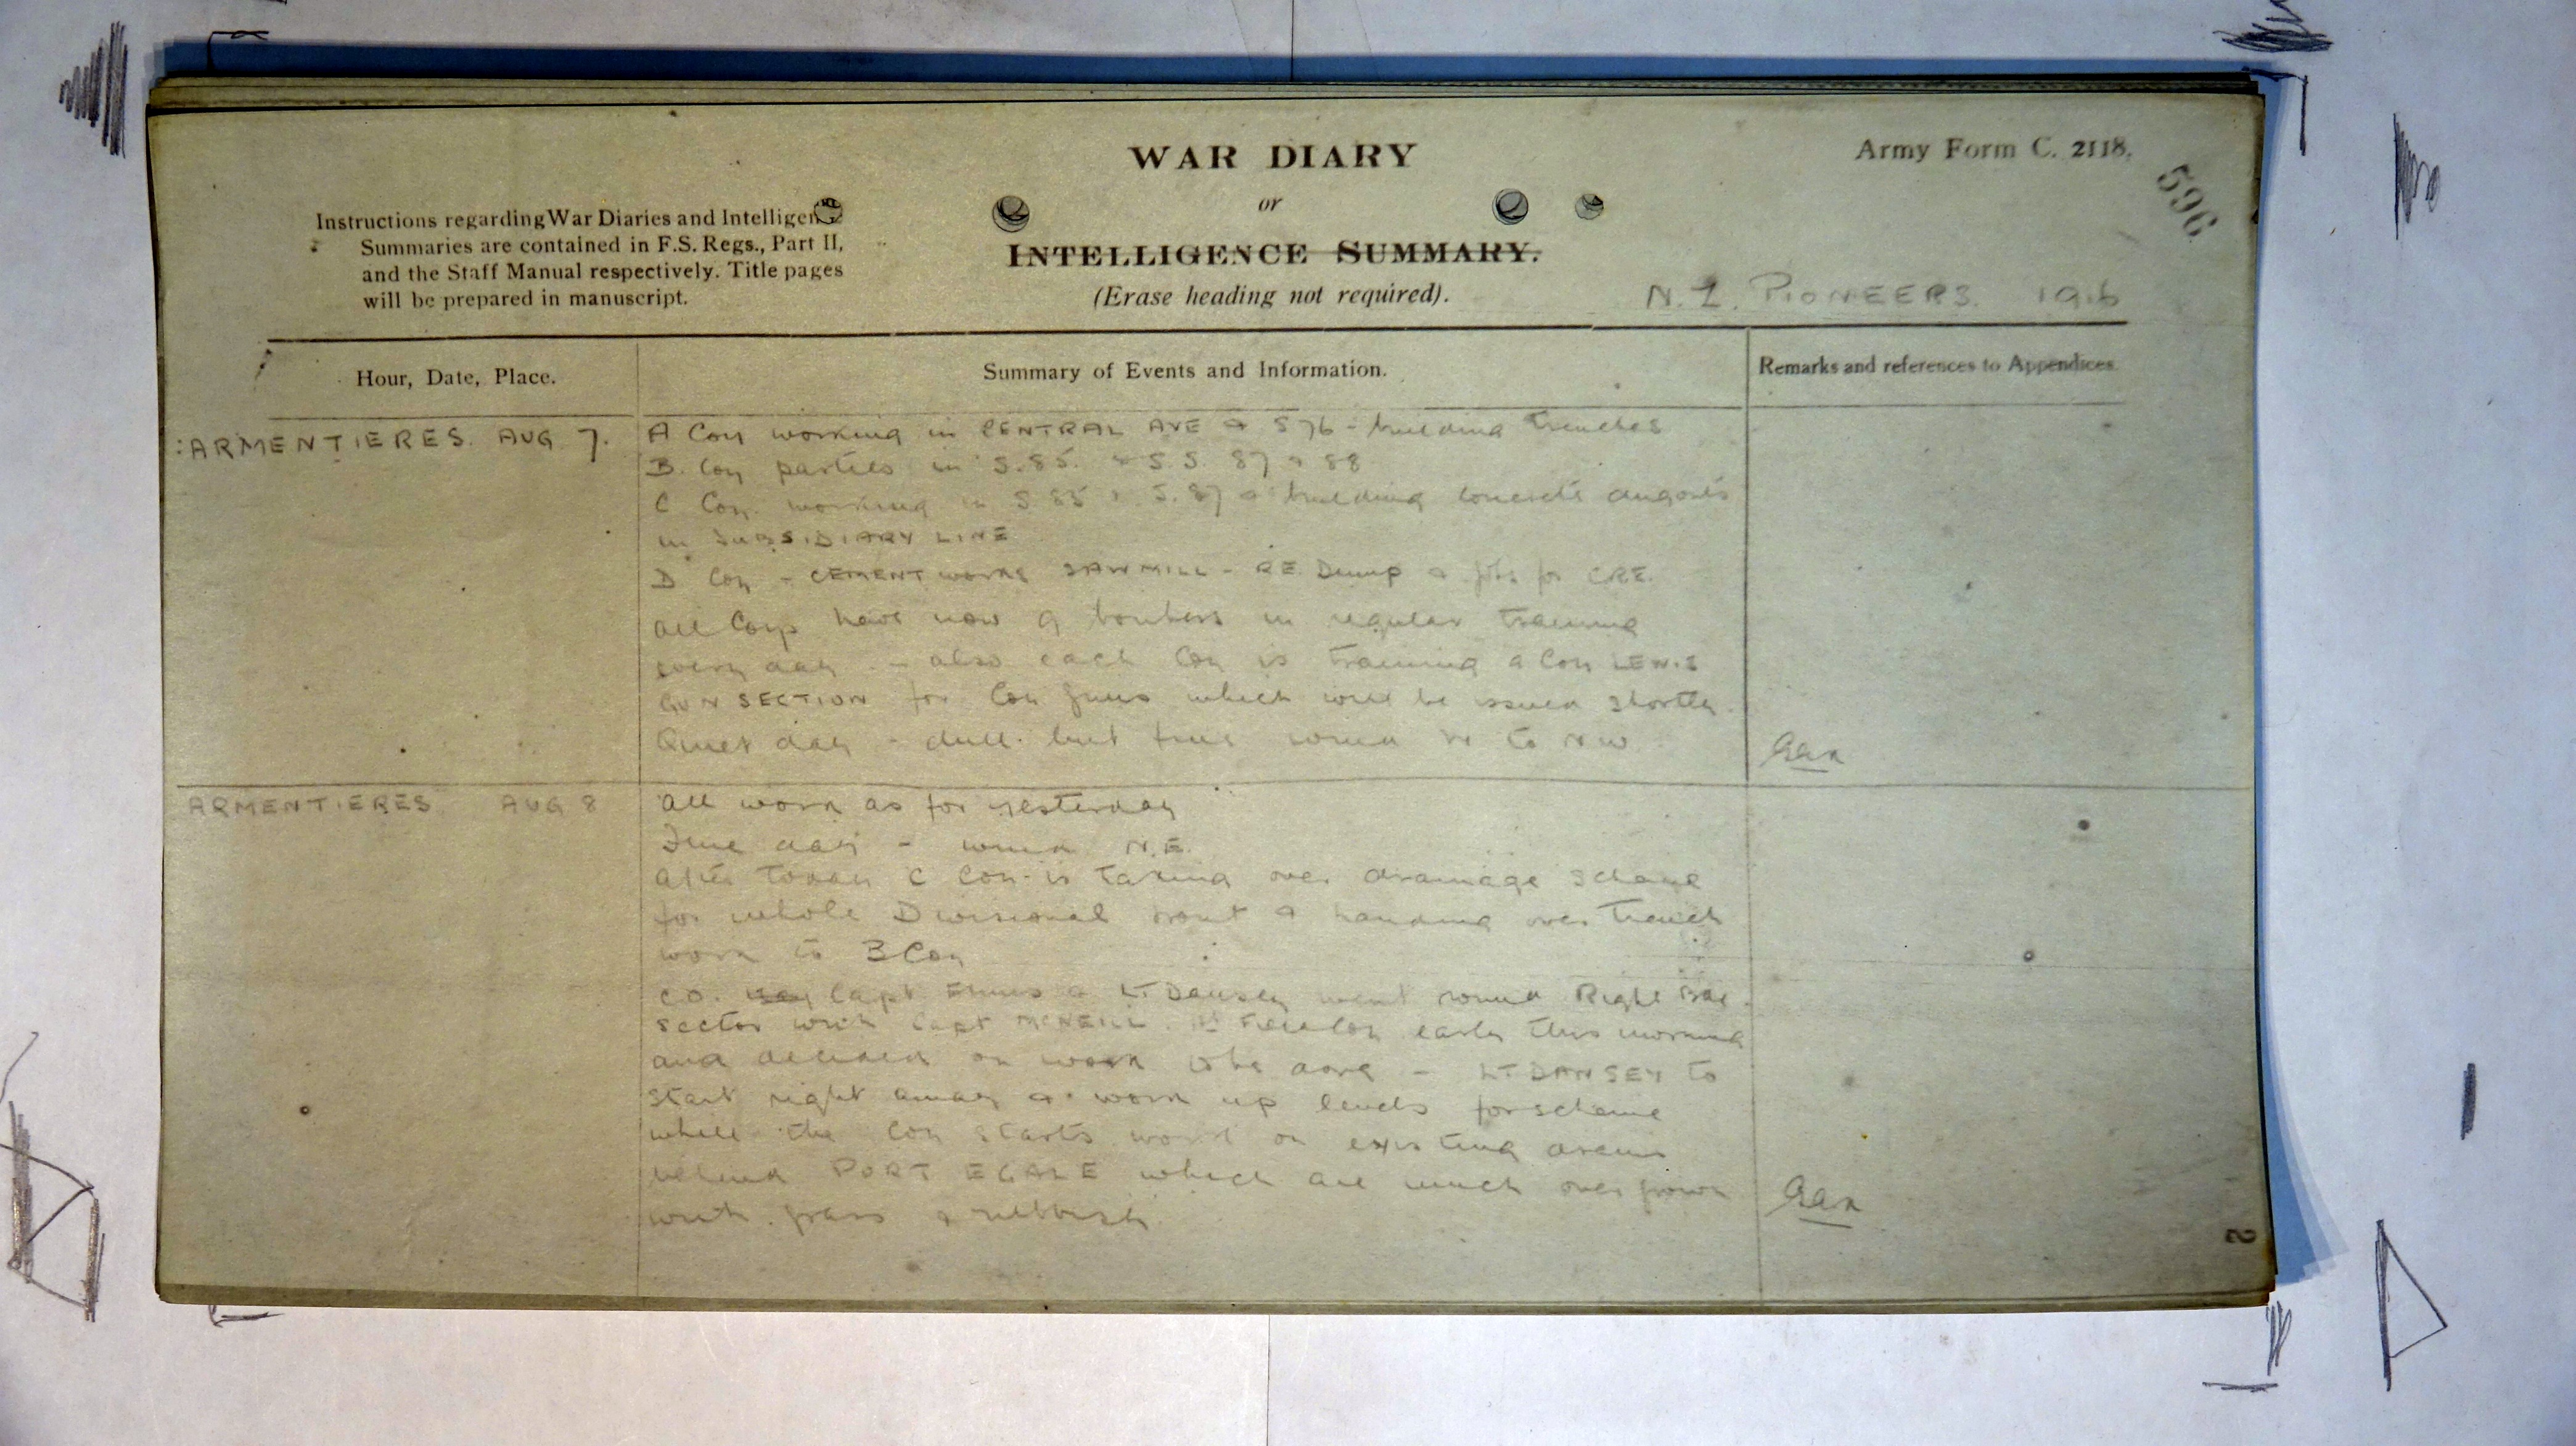 WAR DIARY
or
INTELLIGENCE SUMMARY.
(Erase heading not required).
Army Form C. 2118.
596
Instructions regarding War Diaries and Intelligence
Summaries are contained in F.S. Regs., Part II,
and the Staff Manual respectively. Title pages
will be prepared in manuscript.
N.Z. PIONEERS. 1916
Hour, Date, Place.
Summary of Events and Information.
Remarks and references to Appendices
ARMENTIERES. AUG 7.
A Coy working in CENTRAL AVE & S 76 - building trenches
B. Coy parties in S.85. & S.S. 87 & 88
C Coy. working in S 85 & S.87 & building concrete dugouts
in SUBSIDIARY LINE
D Coy - CEMENT WORKS SAWMILL - RE. Dump & jobs for CRE.
All Coys have now 9 bombers in regular training
every day - also each Coy is training a Coy LEWIS
GUN SECTION for Coy guns which will be issued shortly.
Quiet day - dull but fine wind W to NW.
ARMENTIERES AUG 8
All work as for yesterday
Fine day - wind N.E.
After today C Coy is taking over drainage scheme
for whole Divisional front & handing over trench
work to B Coy
C.O. Capt Ennis & LT Dansey went round Right Bde
sector with Capt McNEILL. Field Coy early this morning
and decided on work to be done - LT DANSEY to
start right away & work up levels for scheme
while the Coy starts work on existing drains
behind PORT EGALE which are much over grown
with grass & rubbish.
2